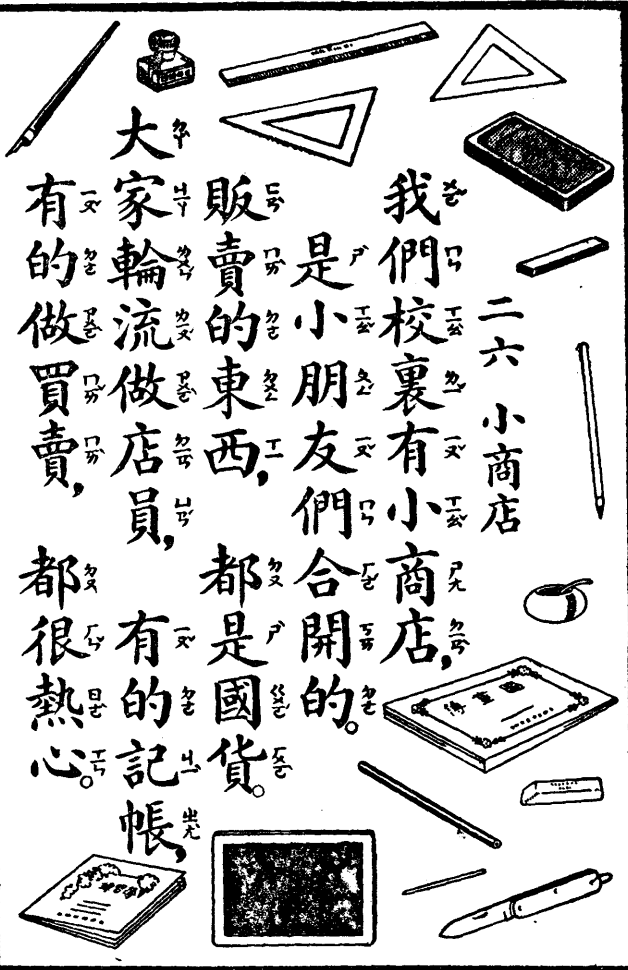 二六 小商店
我們校裏有小商店，
是小朋友們合開的。
販賣的東西，都是國貨。
大家輪流做店員，有的記帳，
有的做買賣，都很熱心。